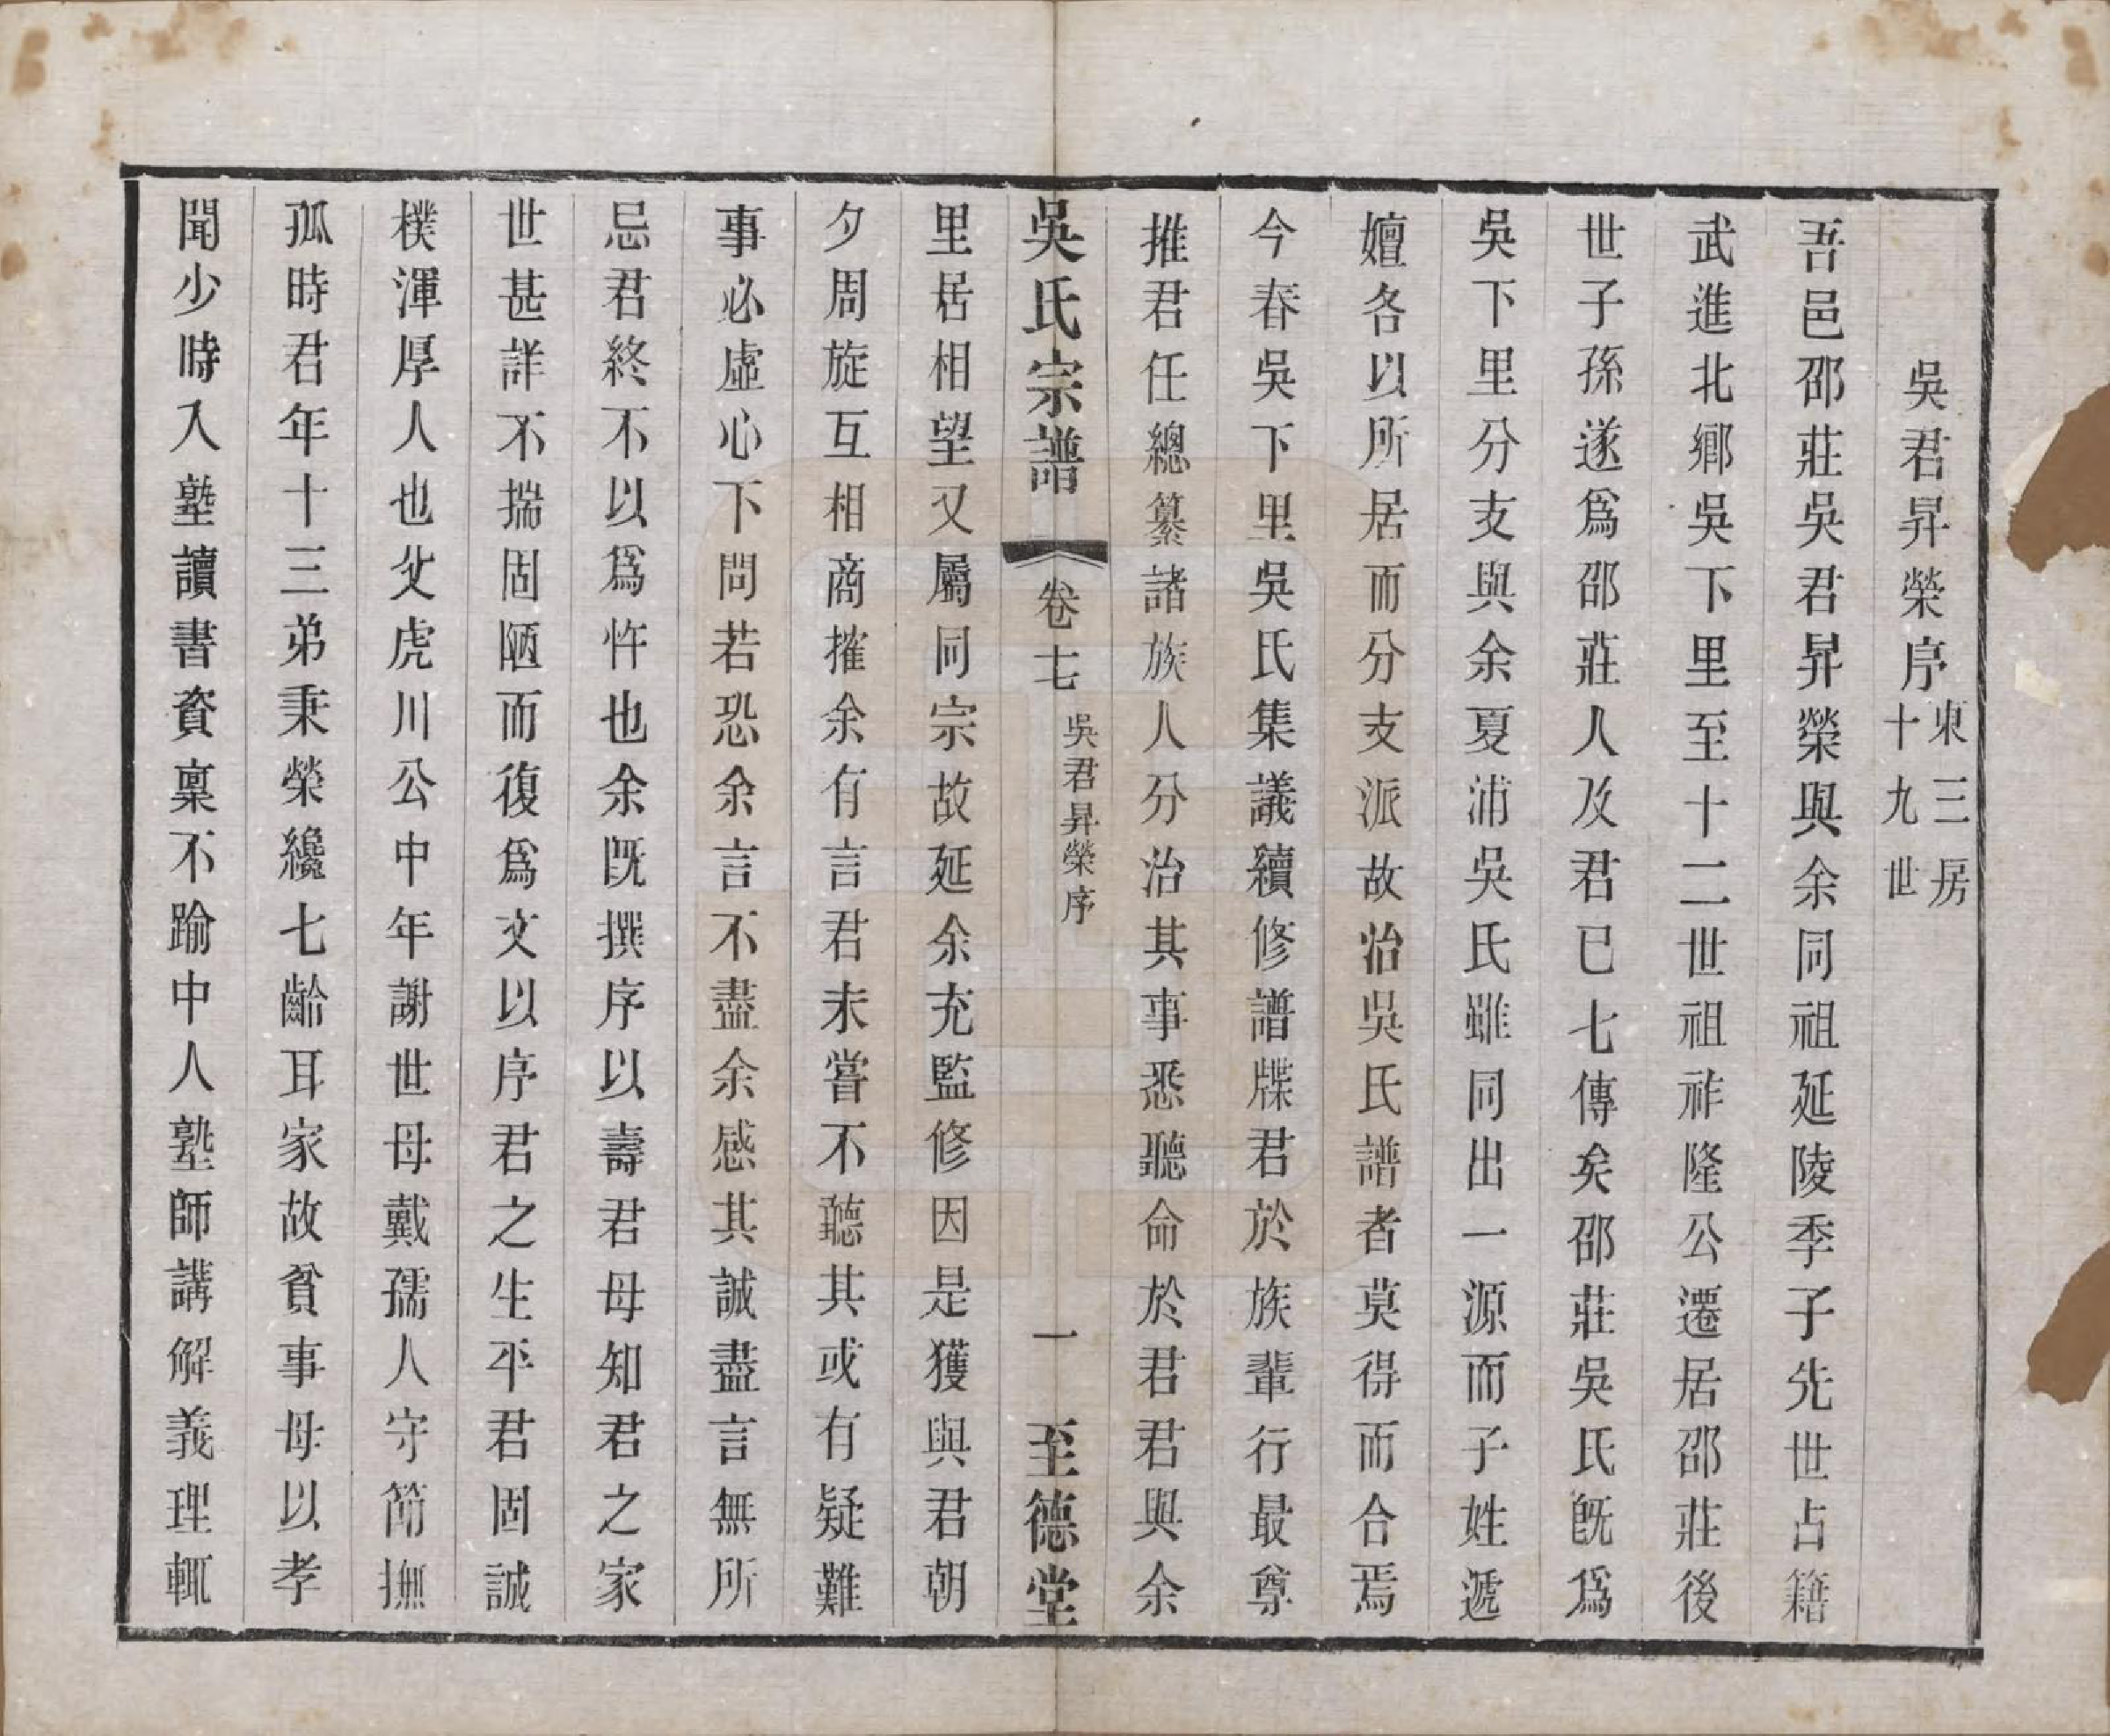 吳君昇榮序 東三房十九世
吾邑邵莊吳君昇榮與余同祖延陵季子先世占籍
武進北鄉吳下里至十二世祖祚隆公遷居邵莊後
世子孫遂爲邵莊人及君已七傳矣邵莊吳氏旣爲
吳下里分支與余夏浦吳氏雖同出一源而子姓遞
嬗各以所居而分支派故治吳氏譜者莫得而合焉
今春吳下里吳氏集議續修譜牒君於族輩行最尊
推君任總纂諸族人分治其事悉聽命於君君與余
吳氏宗譜 卷七 吳君昇榮序 一 至德堂
里居相望又屬同宗故延余充監修因是獲與君朝
夕周旋互相商搉余有言君未嘗不聽其或有疑難
事必虛心下問若恐余言不盡余感其誠盡言無所
忌君終不以爲忤也余旣撰序以壽君母知君之家
世甚詳不揣固陋而復爲文以序君之生平君固誠
樸渾厚人也父虎川公中年謝世母戴孺人守節撫
孤時君年十三弟秉榮纔七齡耳家故貧事母以孝
聞少時入塾讀書資稟不踰中人塾師講解義理輒